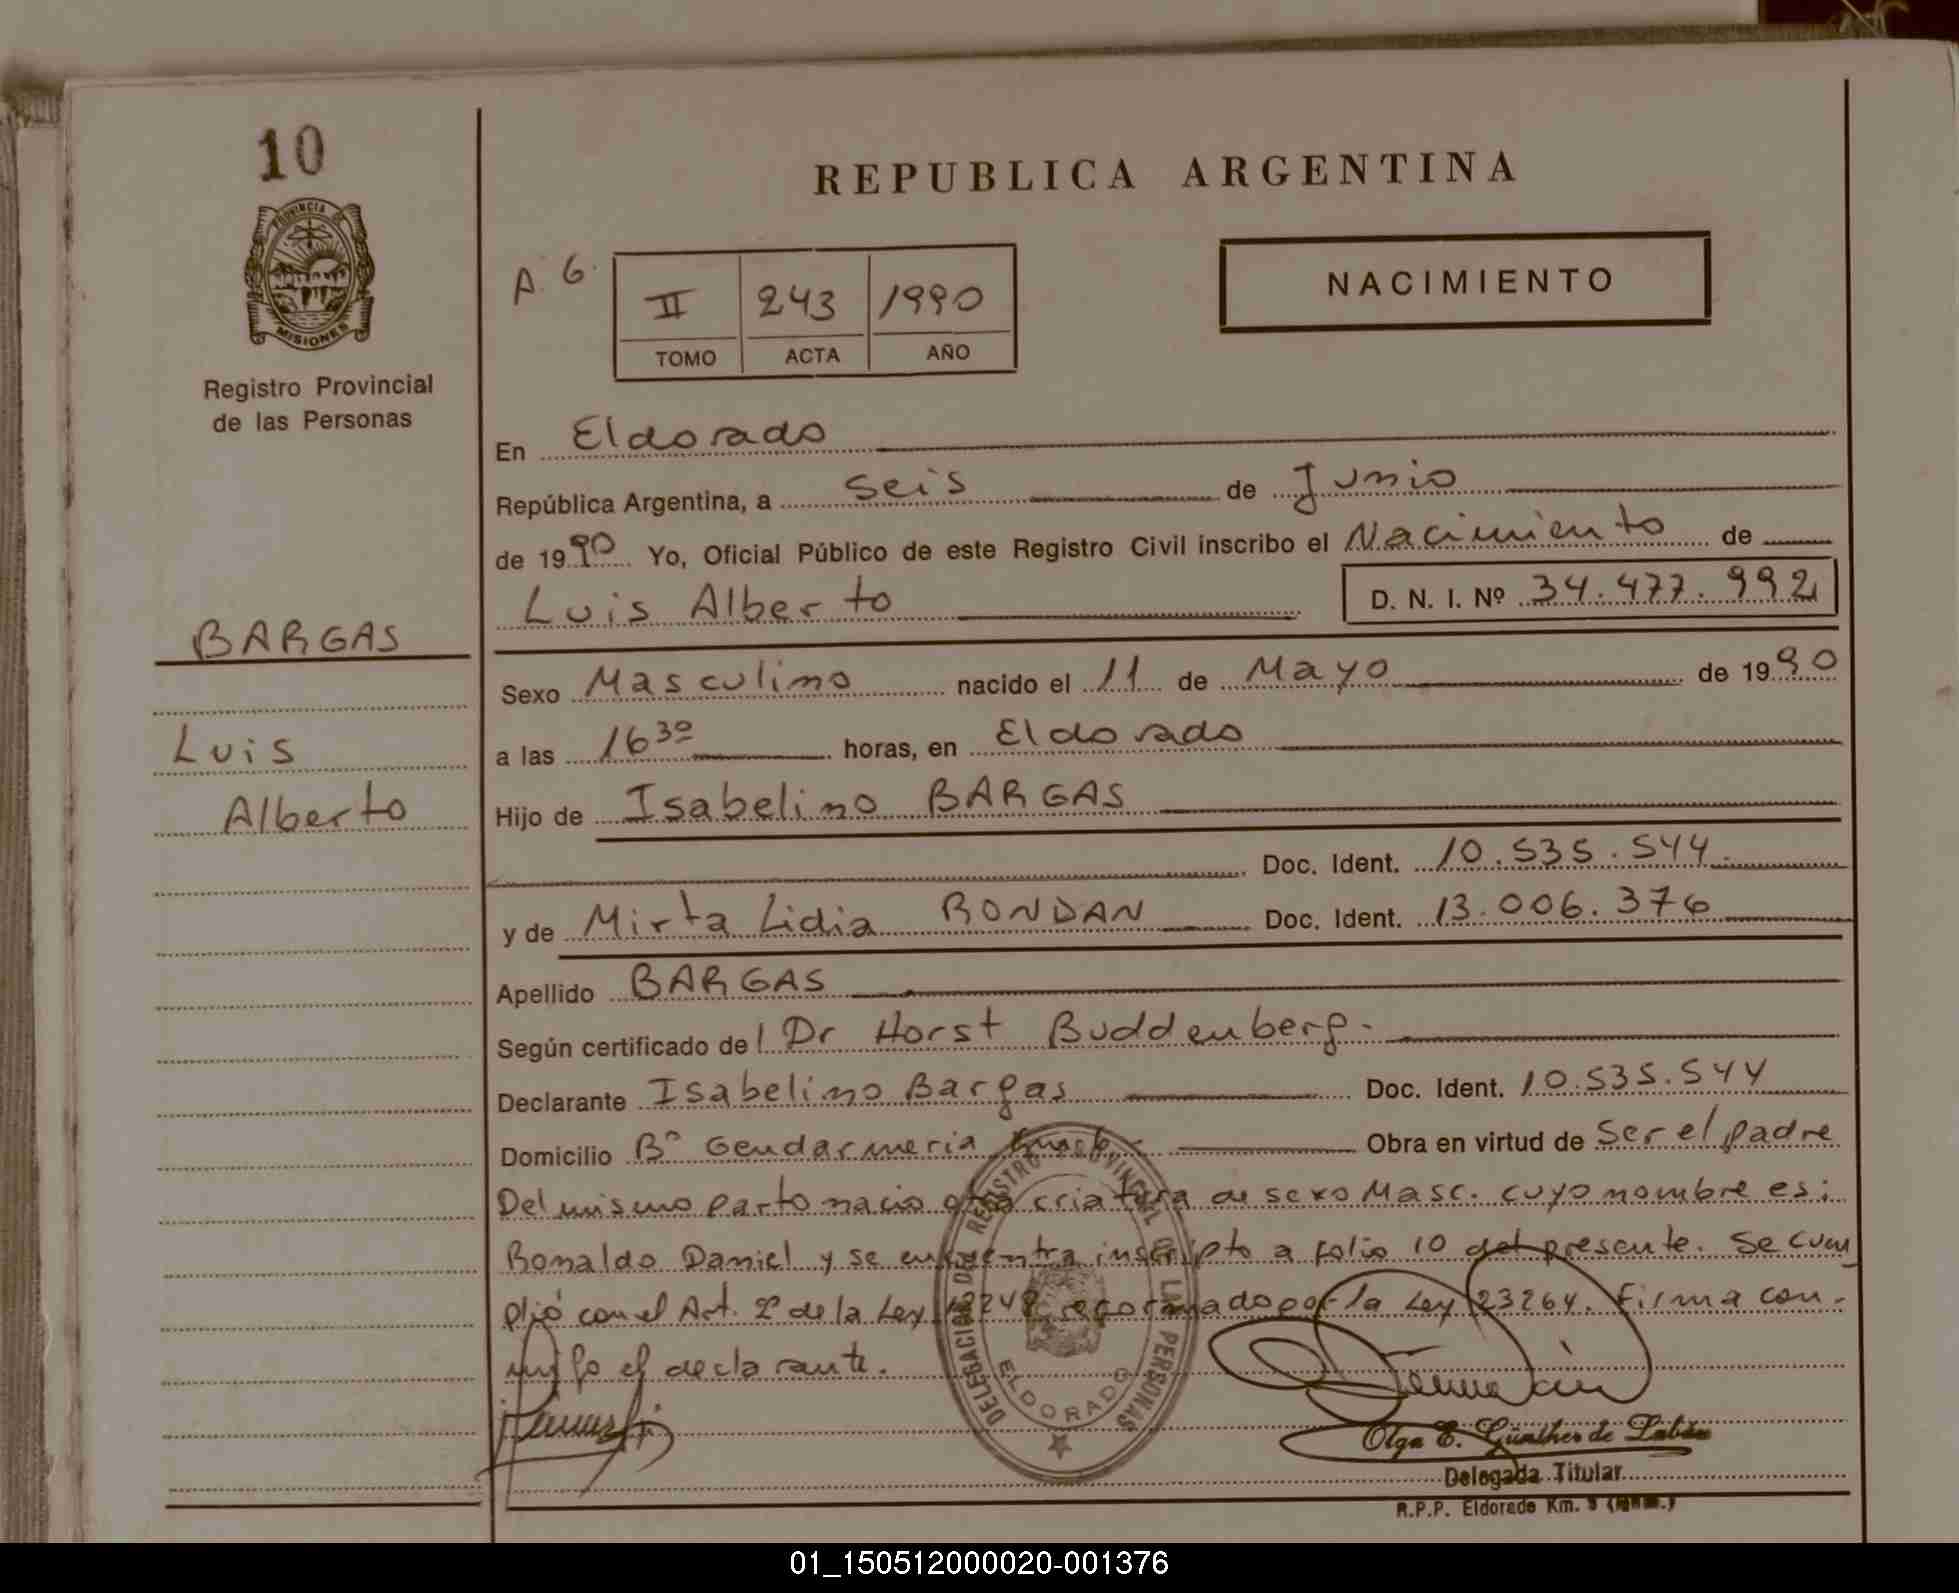 10
PROVINCIA DE
MISIONES
Registro Provincial
de las Personas
BARGAS
Luis
Alberto
REPUBLICA ARGENTINA
A. 6.
II 243 1990
TOMO ACTA AÑO
NACIMIENTO
En Eldorado
República Argentina, a seis de Junio
de 1990 Yo, Oficial Público de este Registro Civil inscribo el Nacimiento de
Luis Alberto D. N. I. Nº 34.477.992
Sexo Masculino nacido el 11 de Mayo de 1990
a las 16 30 horas, en Eldorado
Hijo de Isabelino BARGAS
Doc. Ident. 10.535.544
y de Mirta Lidia RONDAN Doc. Ident. 13.006.376
Apellido BARGAS
Según certificado del Dr Horst Buddenberg.
Declarante Isabelino Bargas Doc. Ident. 10.535.544
Domicilio Bº Gendarmeria Obra en virtud de ser el padre
Del mismo parto nacio otra criatura de sexo Masc. cuyo nombre es:
Ronaldo Daniel y se encuentra inscripto a folio 10 del presente. Se cum
plió con el Art. 2º de la Ley 18248 reformado por la Ley 23264. Firma con-
migo el declarante.
DELEGACION DEL REGISTRO PROVINCIAL DE LAS PERSONAS
ELDORADO
Olga E. Günther de
Delegada Titular
R.P.P. Eldorado Km. 9
01_150512000020-001376